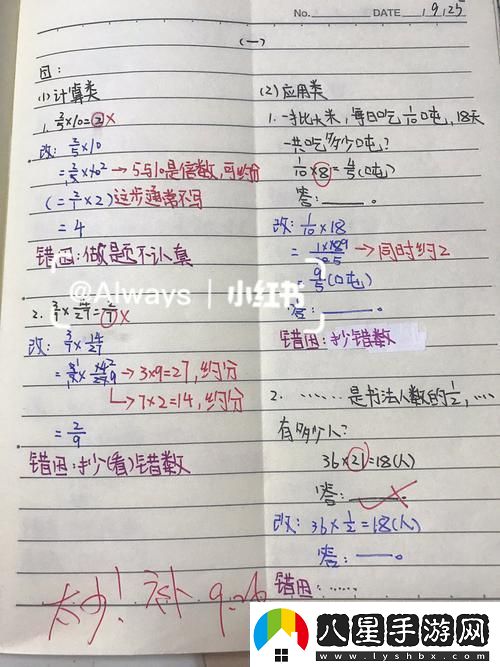 No. DATE 9.25
(一)
因:
(1) 计算类
1. 2/5×10=2×
改: 2/5×10
=2/5×10² → 5与10是倍数,可约分
(=2/1×2)这步通常不写
=4
错因:做题不认真
2. 3/7×14/27=
改: 3/7×14/27
→ 3×9=27,约分
→ 7×2=14,约分
=2/9
错因:抄(看)错数
(2) 应用类
1. 一批大米,每日吃1/10吨,18天
一共吃多少吨?
1/10×8=4/5(吨)
答:
改: 1/10×18
→同时约2
9/5(吨)
答:
错因:抄错数
2. ……是书法人数的1/2,…
有多少人?
36×21=18(人)
答:
改: 36×1/2=18(人)
答:
错因:……
太少!补 9.26
@Always | 小红书
八星手游网
www.lyshbx.com